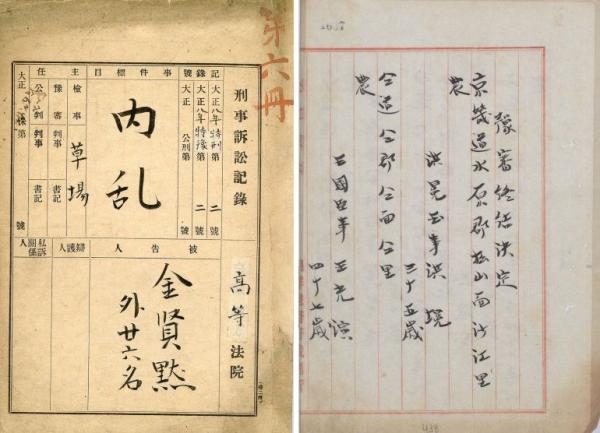 第六冊
刑事訴訟記錄
高等法院
記錄號
大正八年特刑第二號
大正八年特豫第二號
大正 公刑第 號
事件標目
内乱
主任
檢事 草場
豫審判事 書記
公判判事 書記
大正 第 號
被告人
金賢黙
外廿六名
辯護人
私訴關係人
豫審終結決定
京畿道水原郡松山面沙江里
農
洪冕玉事洪𡊠
三十五歳
仝道仝郡仝面仝里
農
王國臣事 王光演
四十七歳
438